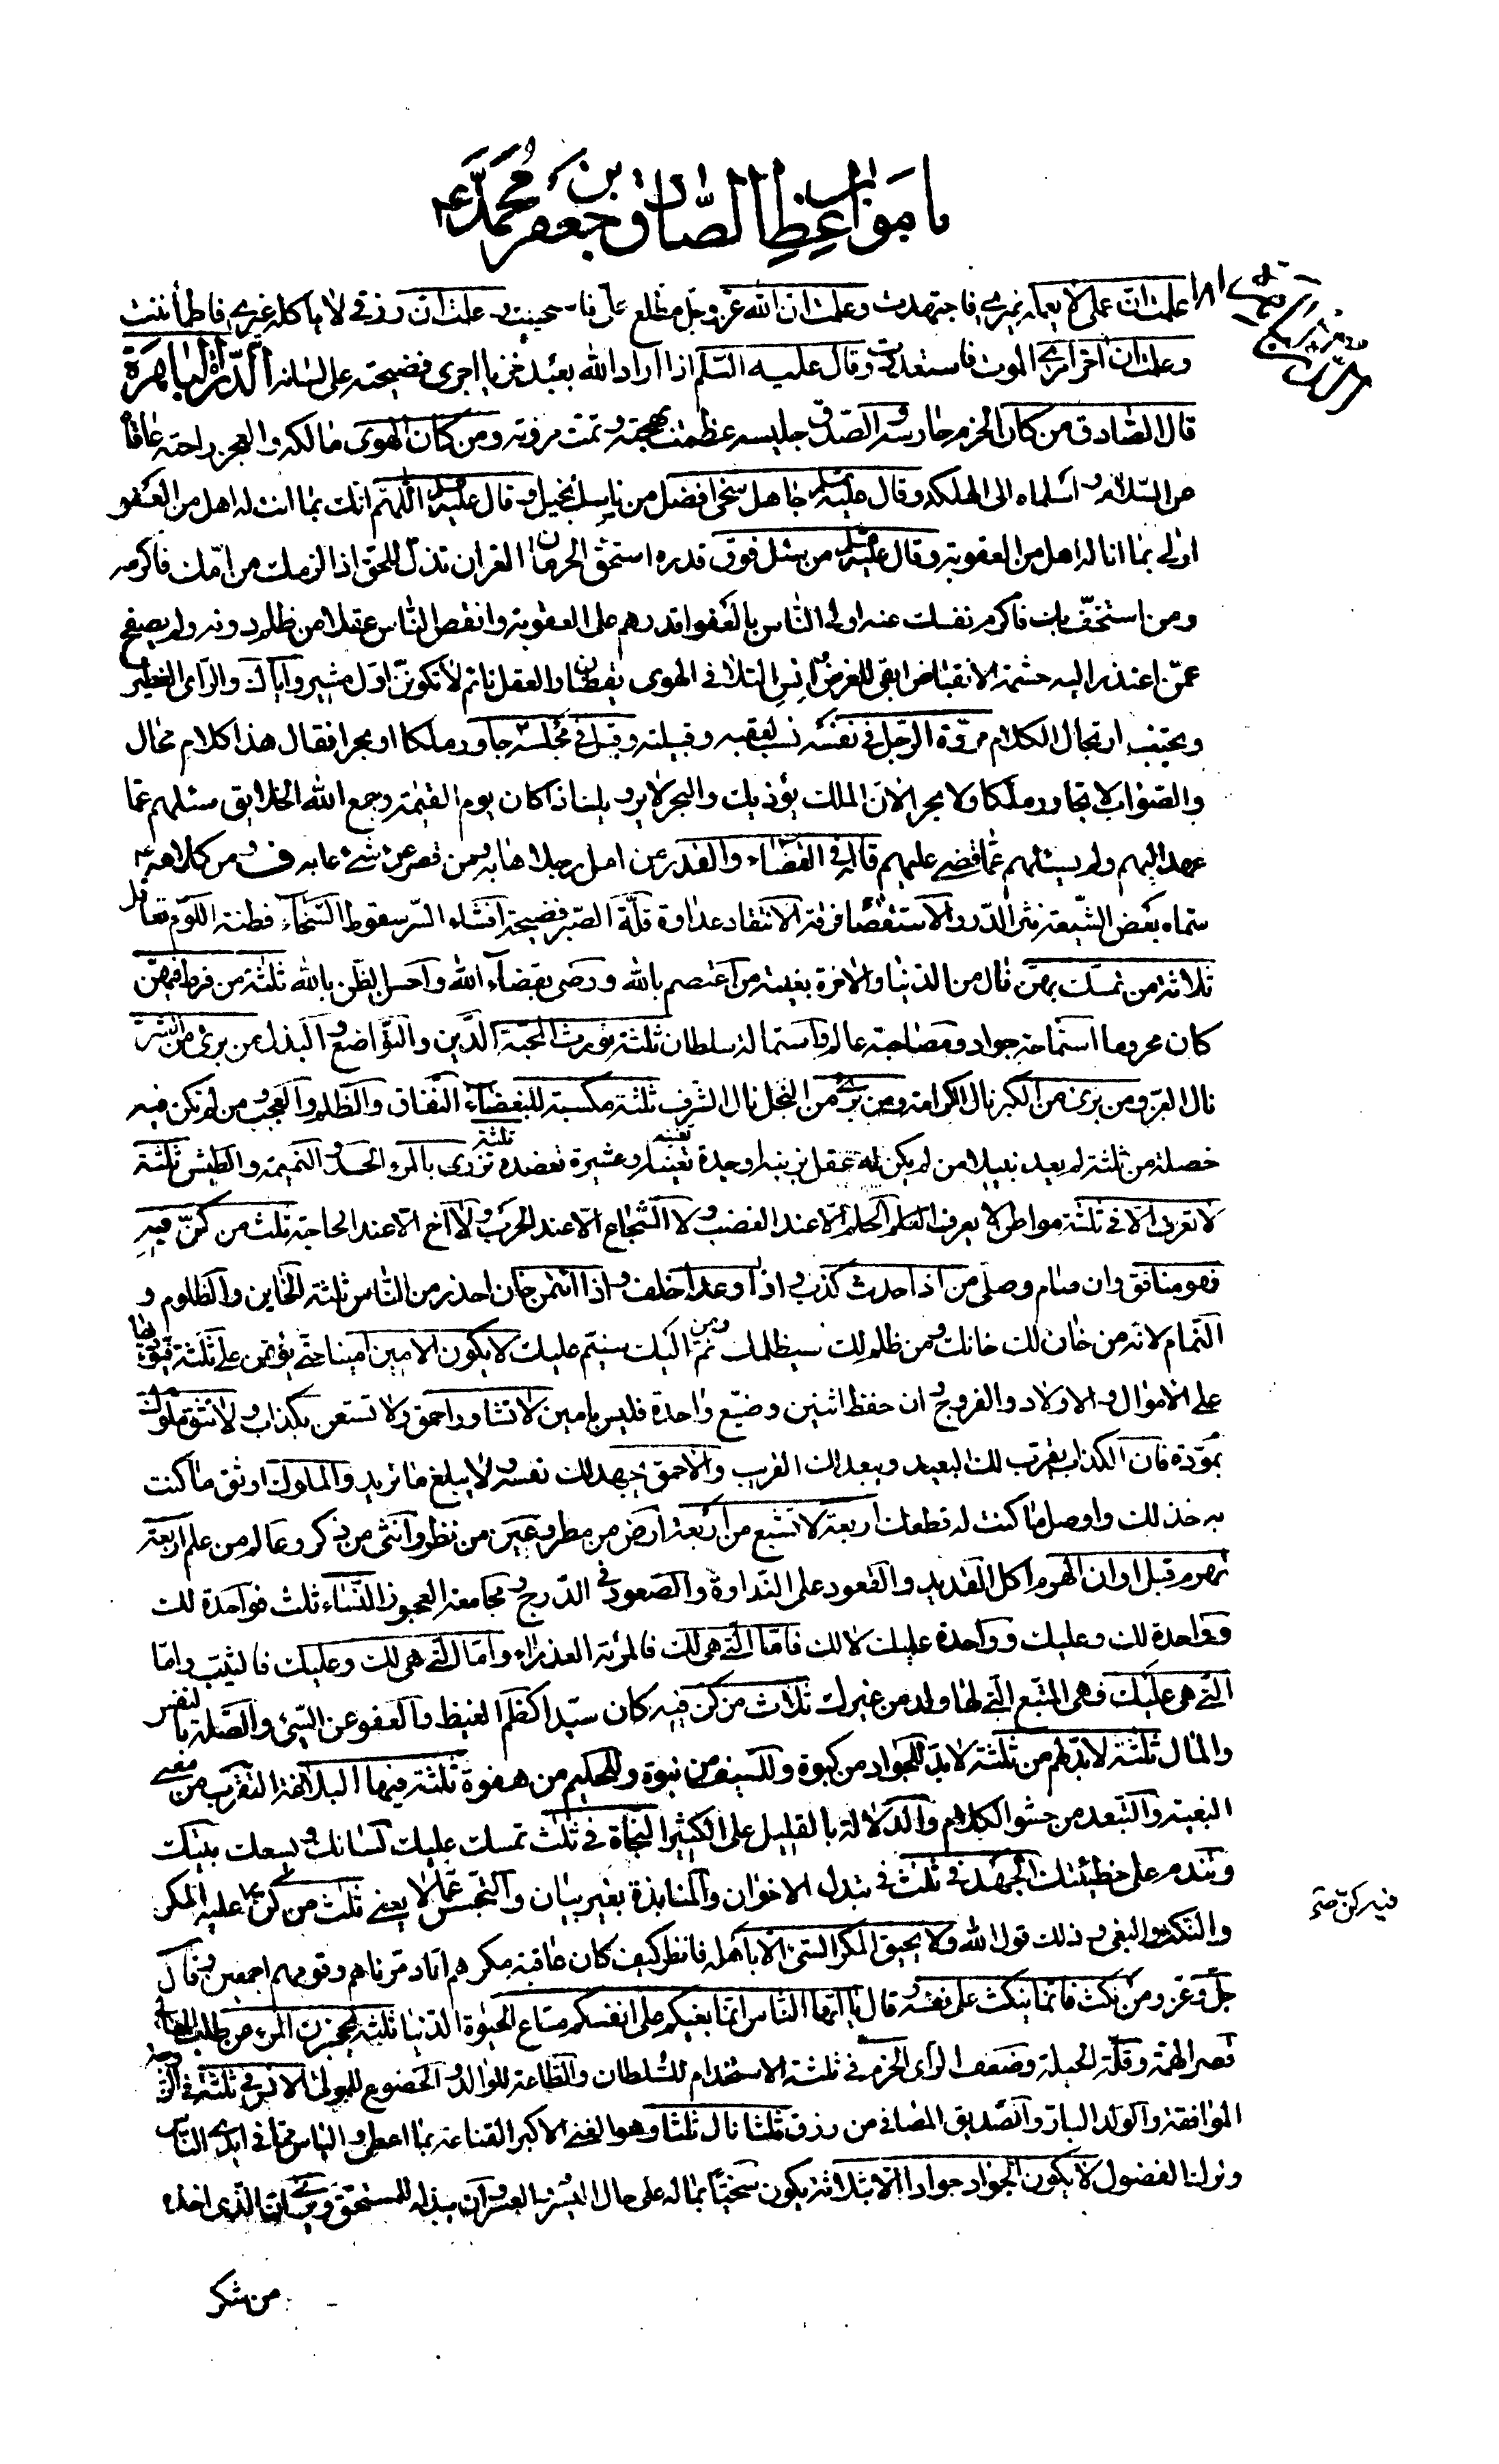 باب مواعظ الصادق جعفر بن محمد ع
علمت ان عملى لا يعمله غيرى فاجتهدت وعلمت ان الله عز وجل مطلع على فاستحييت وعلمت ان رزقى لا ياكله غيرى فاطمأننت
وعلمت ان اخر امرى الموت فاستعددت وقال عليه السلم اذا اراد الله بعبد خزيا اجرى فضيحته على لسانه الدرة الباهرة
قال الصادق من كان الحزم حارسه والصدق جليسه عظمت بهجته وتمت مروته ومن كان الهوى مالكه والعجز راحته عاقاه
عن السلامة واسلماه الى الهلكة وقال عليه السلم جاهل سخى افضل من ناسك بخيل وقال عليه السلم اللهم انك بما انت له اهل من العفو
اولى بما انا له اهل من العقوبة وقال عليه السلم من سئل فوق قدره استحق الحرمان العز ان تذل للحق اذا لزمك من امك فاكرمه
ومن استخف بك فاكرم نفسك عنه اولى الناس بالعفو اقدرهم على العقوبة وانقص الناس عقلا من ظلم دونه ولم يصفح
عمن اعتذر اليه حشمة الانقباض ابقى للعرض من انس التلاقى الهوى يقظان والعقل نائم لا تكونن اول مشير واياك والراى الفطير
وتجنب ارتجال الكلام مروة الرجل فى نفسه نسب لعقبه وقبيلته وقيل فى مجلسه جاور ملكا او بحرا فقال هذا كلام محال
والصواب لا تجاور ملكا ولا بحرا لان الملك يؤذيك والبحر لا يرويك اذا كان يوم القيمة وجمع الله الخلايق سئلهم عما
عهد اليهم ولم يسئلهم عما قضى عليهم قاله فى القضاء والقدر من امل رجلا هابه ومن قصر عن شئ عابه ف ومن كلامه ع
سماه بعض الشيعة نثر الدرر الاستقصاء فرقة الانتقاد عداوة قلة الصبر فضيحة افشاء السر سقوط السخاء فطنة اللوم تغافل
ثلاثة من تمسك بهن نال من الدنيا والاخرة بغيته من اعتصم بالله ورضى بقضاء الله واحسن الظن بالله ثلثة من فرط فيهن
كان محروما استماحة جواد ومصاحبة عالم واستمالة سلطان ثلثة تورث المحبة الدين والتواضع والبذل من برئ من الشر
نال العز ومن برئ من الكبر نال الكرامة ومن برئ من البخل نال الشرف ثلثة مكسبة للبغضاء النفاق والظلم والعجب من لم تكن فيه
خصلة من ثلثة لم يعد نبيلا من لم يكن له عقل يزينه او جدة تغنيه او عشيرة تعضده ثلثة تزرى بالمرء الحسد والنميمة والطيش ثلثة
لا تعرف الا فى ثلثة مواطن لا يعرف الحليم الا عند الغضب ولا الشجاع الا عند الحرب ولا اخ الا عند الحاجة ثلث من كن فيه
فهو منافق وان صام وصلى من اذا حدث كذب واذا وعد اخلف واذا ائتمن خان احذر من الناس ثلثة الخاين والظلوم و
النمام لانه من خان لك خانك ومن ظلم لك سيظلمك ومن نم اليك سينم عليك لا يكون الامين امينا حتى يؤتمن على ثلثة فيؤديها
على الاموال والاولاد والفروج وان حفظ اثنين وضيع واحدة فليس بامين لا تشاور احمق ولا تستعن بكذاب ولا تثق
بمودة ملوك فان الكذاب يقرب لك البعيد ويبعد لك القريب والاحمق يجهد لك نفسه ولا يبلغ ما تريد والملوك اوثق ما كنت
به خذلك واوصل ما كنت له قطعك اربعة لا تشبع من اربعة ارض من مطر وعين من نظر وانثى من ذكر وعالم من علم اربعة
تهرم قبل اوان الهرم اكل القديد والقعود على النداوة والصعود فى الدرج ومجامعة العجوز النساء ثلث فواحدة لك
وواحدة لك وعليك وواحدة عليك لا لك فاما التى هى لك فالمرئة العذراء واما التى هى لك وعليك فالثيب واما
التى هى عليك فهى المتبع التى لها ولد من غيرك ثلاث من كن فيه كان سيدا كظم الغيظ والعفو عن السيئ والصلة بالنفس
والمال ثلثة لابد لهم من ثلثة لابد للجواد من كبوة وللسيف من نبوة وللحليم من هفوة ثلثة فيها البلاغة التقرب من معنى
البغية والتبعد من حشو الكلام والدلالة بالقليل على الكثير النجاة فى ثلث تمسك عليك لسانك ويسعك بيتك
وتندم على خطيئتك الجهد فى ثلث فى تبدل الاخوان والمنابذة بغير بيان والتجسس عما لا يعنى ثلث من كن عليه المكر
والنكث والبغى وذلك قول الله ولا يحيق المكر السئ الا باهله فانظر كيف كان عاقبة مكرهم انا دمرناهم وقومهم اجمعين وقال
جل وعز ومن نكث فانما ينكث على نفسه وقال يا ايها الناس انما بغيكم على انفسكم متاع الحيوة الدنيا ثلثة يحجزن المرء عن طلب المعالى
قصر الهمة وقلة الحيلة وضعف الراى الحزم فى ثلثة الاستخدام للسلطان والطاعة للوالد والخضوع للمولى الانس فى ثلثة فى الزوجة
الموافقة والولد البار والصديق المصافى من رزق ثلثا نال ثلثا وهو الغنى الاكبر القناعة بما اعطى والياس مما فى ايدى الناس
وترك الفضول لا يكون الجواد جوادا الا بثلاثة يكون سخيا بماله على حال اليسر والعسر وان يبذله للمستحق ويرى ان الذى اخذه
من شكر
فيه كن صح